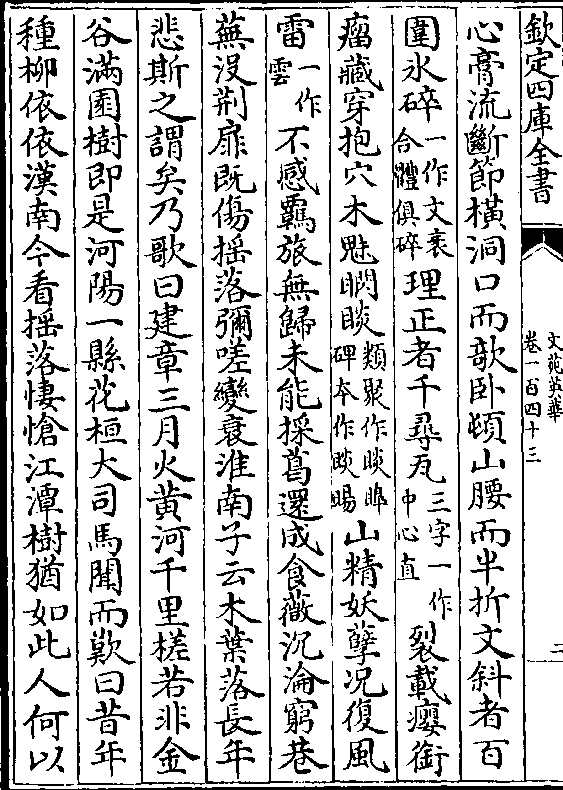 欽定四庫全書
文苑英華
卷一百四十三
二
心膏流斷節橫洞口而欹卧頓山腰而半折文斜者百
圍氷碎一作文衺合體俱碎理正者千尋瓦三字一作中心直裂載癭銜
瘤藏穿抱穴木魅睒類聚作睒碑本作睒睗山精妖孽况復風
雷一作雲不感羈旅無歸未能採葛還成食薇沉淪窮巷
蕪没荆扉既傷揺落彌嗟變衰淮南子云木葉落長年
悲斯之謂矣乃歌曰建章三月火黄河千里槎若非金
谷滿園樹即是河陽一縣花桓大司馬聞而歎曰昔年
種柳依依漢南今看揺落悽愴江潭樹猶如此人何以